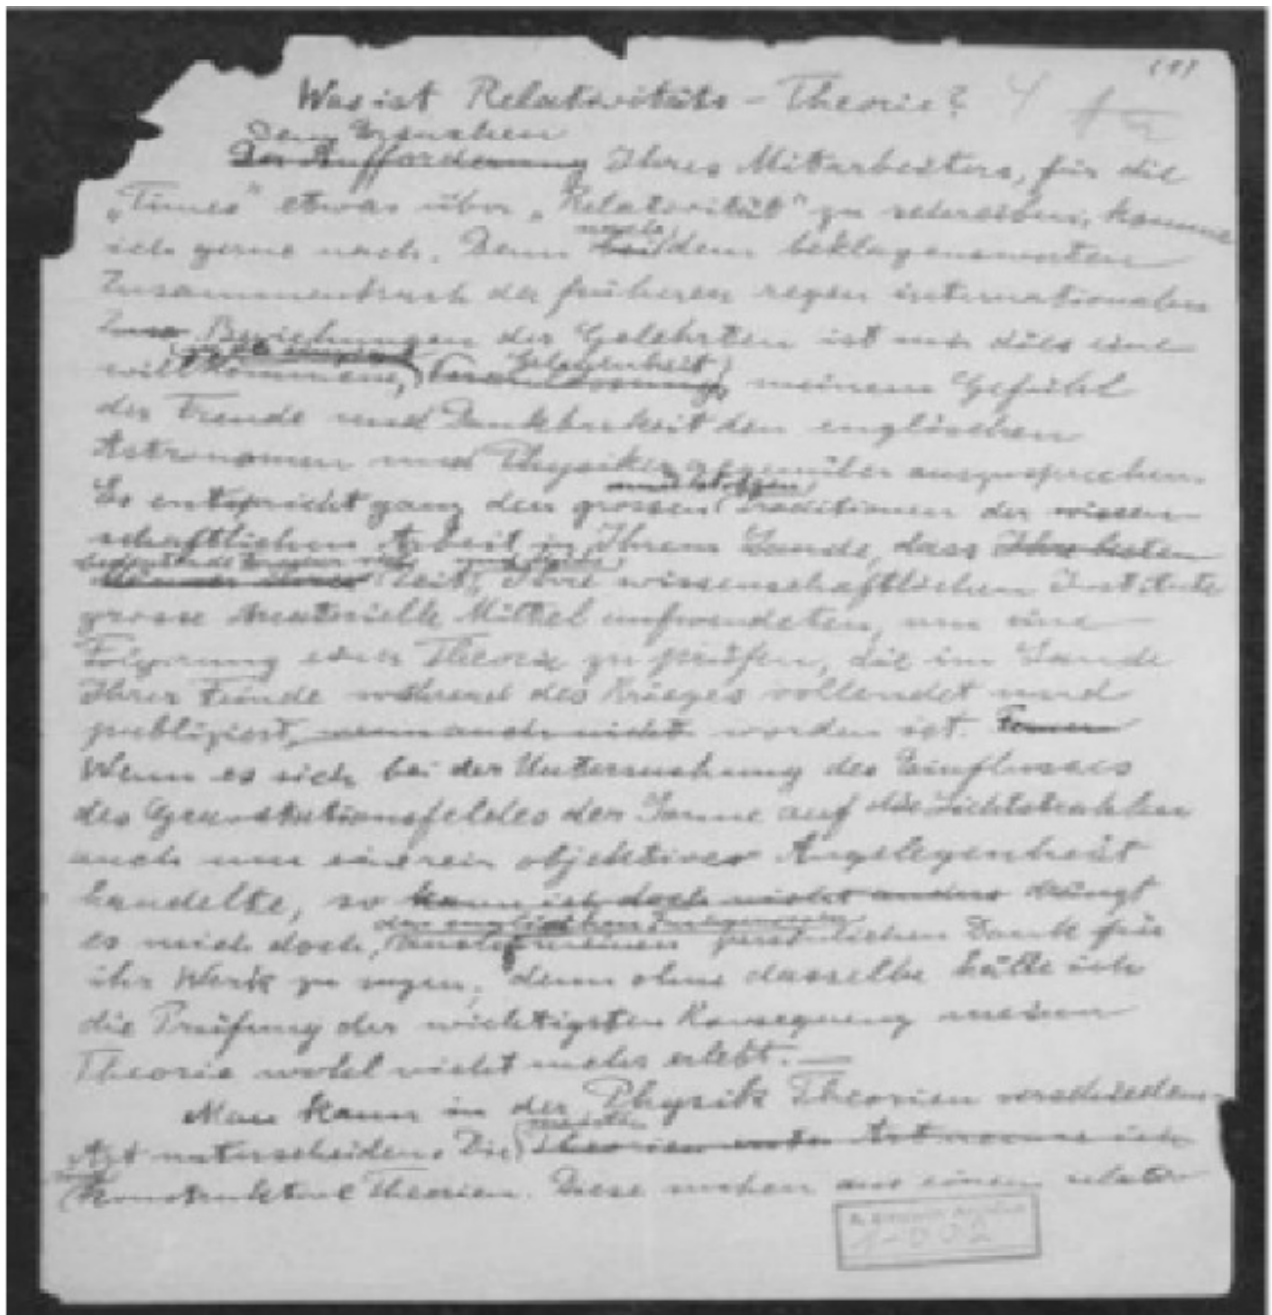 (1)
Was ist Relativitäts-Theorie?
Dem Ersuchen
Der Aufforderung Ihres Mitarbeiters, für die
„Times" etwas über „Relativität" zu schreiben, komme
nach
ich gerne nach. Denn bei dem beklagenswerten
Zusammenbruch der früheren regen internationalen
Beziehungen der Gelehrten ist mir dies eine
Gelegenheit
willkommene, Veranlassung, meinem Gefühl
der Freude und Dankbarkeit den englischen
Astronomen und Physikern gegenüber auszusprechen.
und stolzen
Es entspricht ganz den grossen Traditionen der wissen-
schaftlichen Arbeit in Ihrem Lande, dass Ihre besten
bedeutende
Männer Zeit, Ihre wissenschaftlichen Institute
grosse materielle Mittel aufwendeten, um eine
Folgerung einer Theorie zu prüfen, die im Lande
Ihrer Feinde während des Krieges vollendet und
publiziert, wenn auch nicht worden ist. Ferner
Wenn es sich bei der Untersuchung des Einflusses
des Gravitationsfeldes der Sonne auf die Lichtstrahlen
auch um eine rein objektive Angelegenheit
handelte, so kann ich doch nicht anders drängt
den englischen Fachgenossen
es mich doch, meinen persönlichen Dank für
ihr Werk zu sagen; denn ohne dasselbe hätte ich
die Prüfung der wichtigsten Konsequenz meiner
Theorie wohl nicht mehr erlebt. —
Man kann in der Physik Theorien verschiedener
meisten
Art unterscheiden. Die Theorien erster Art nenne ich
sind
konstruktive Theorien. Diese suchen aus einem relativ